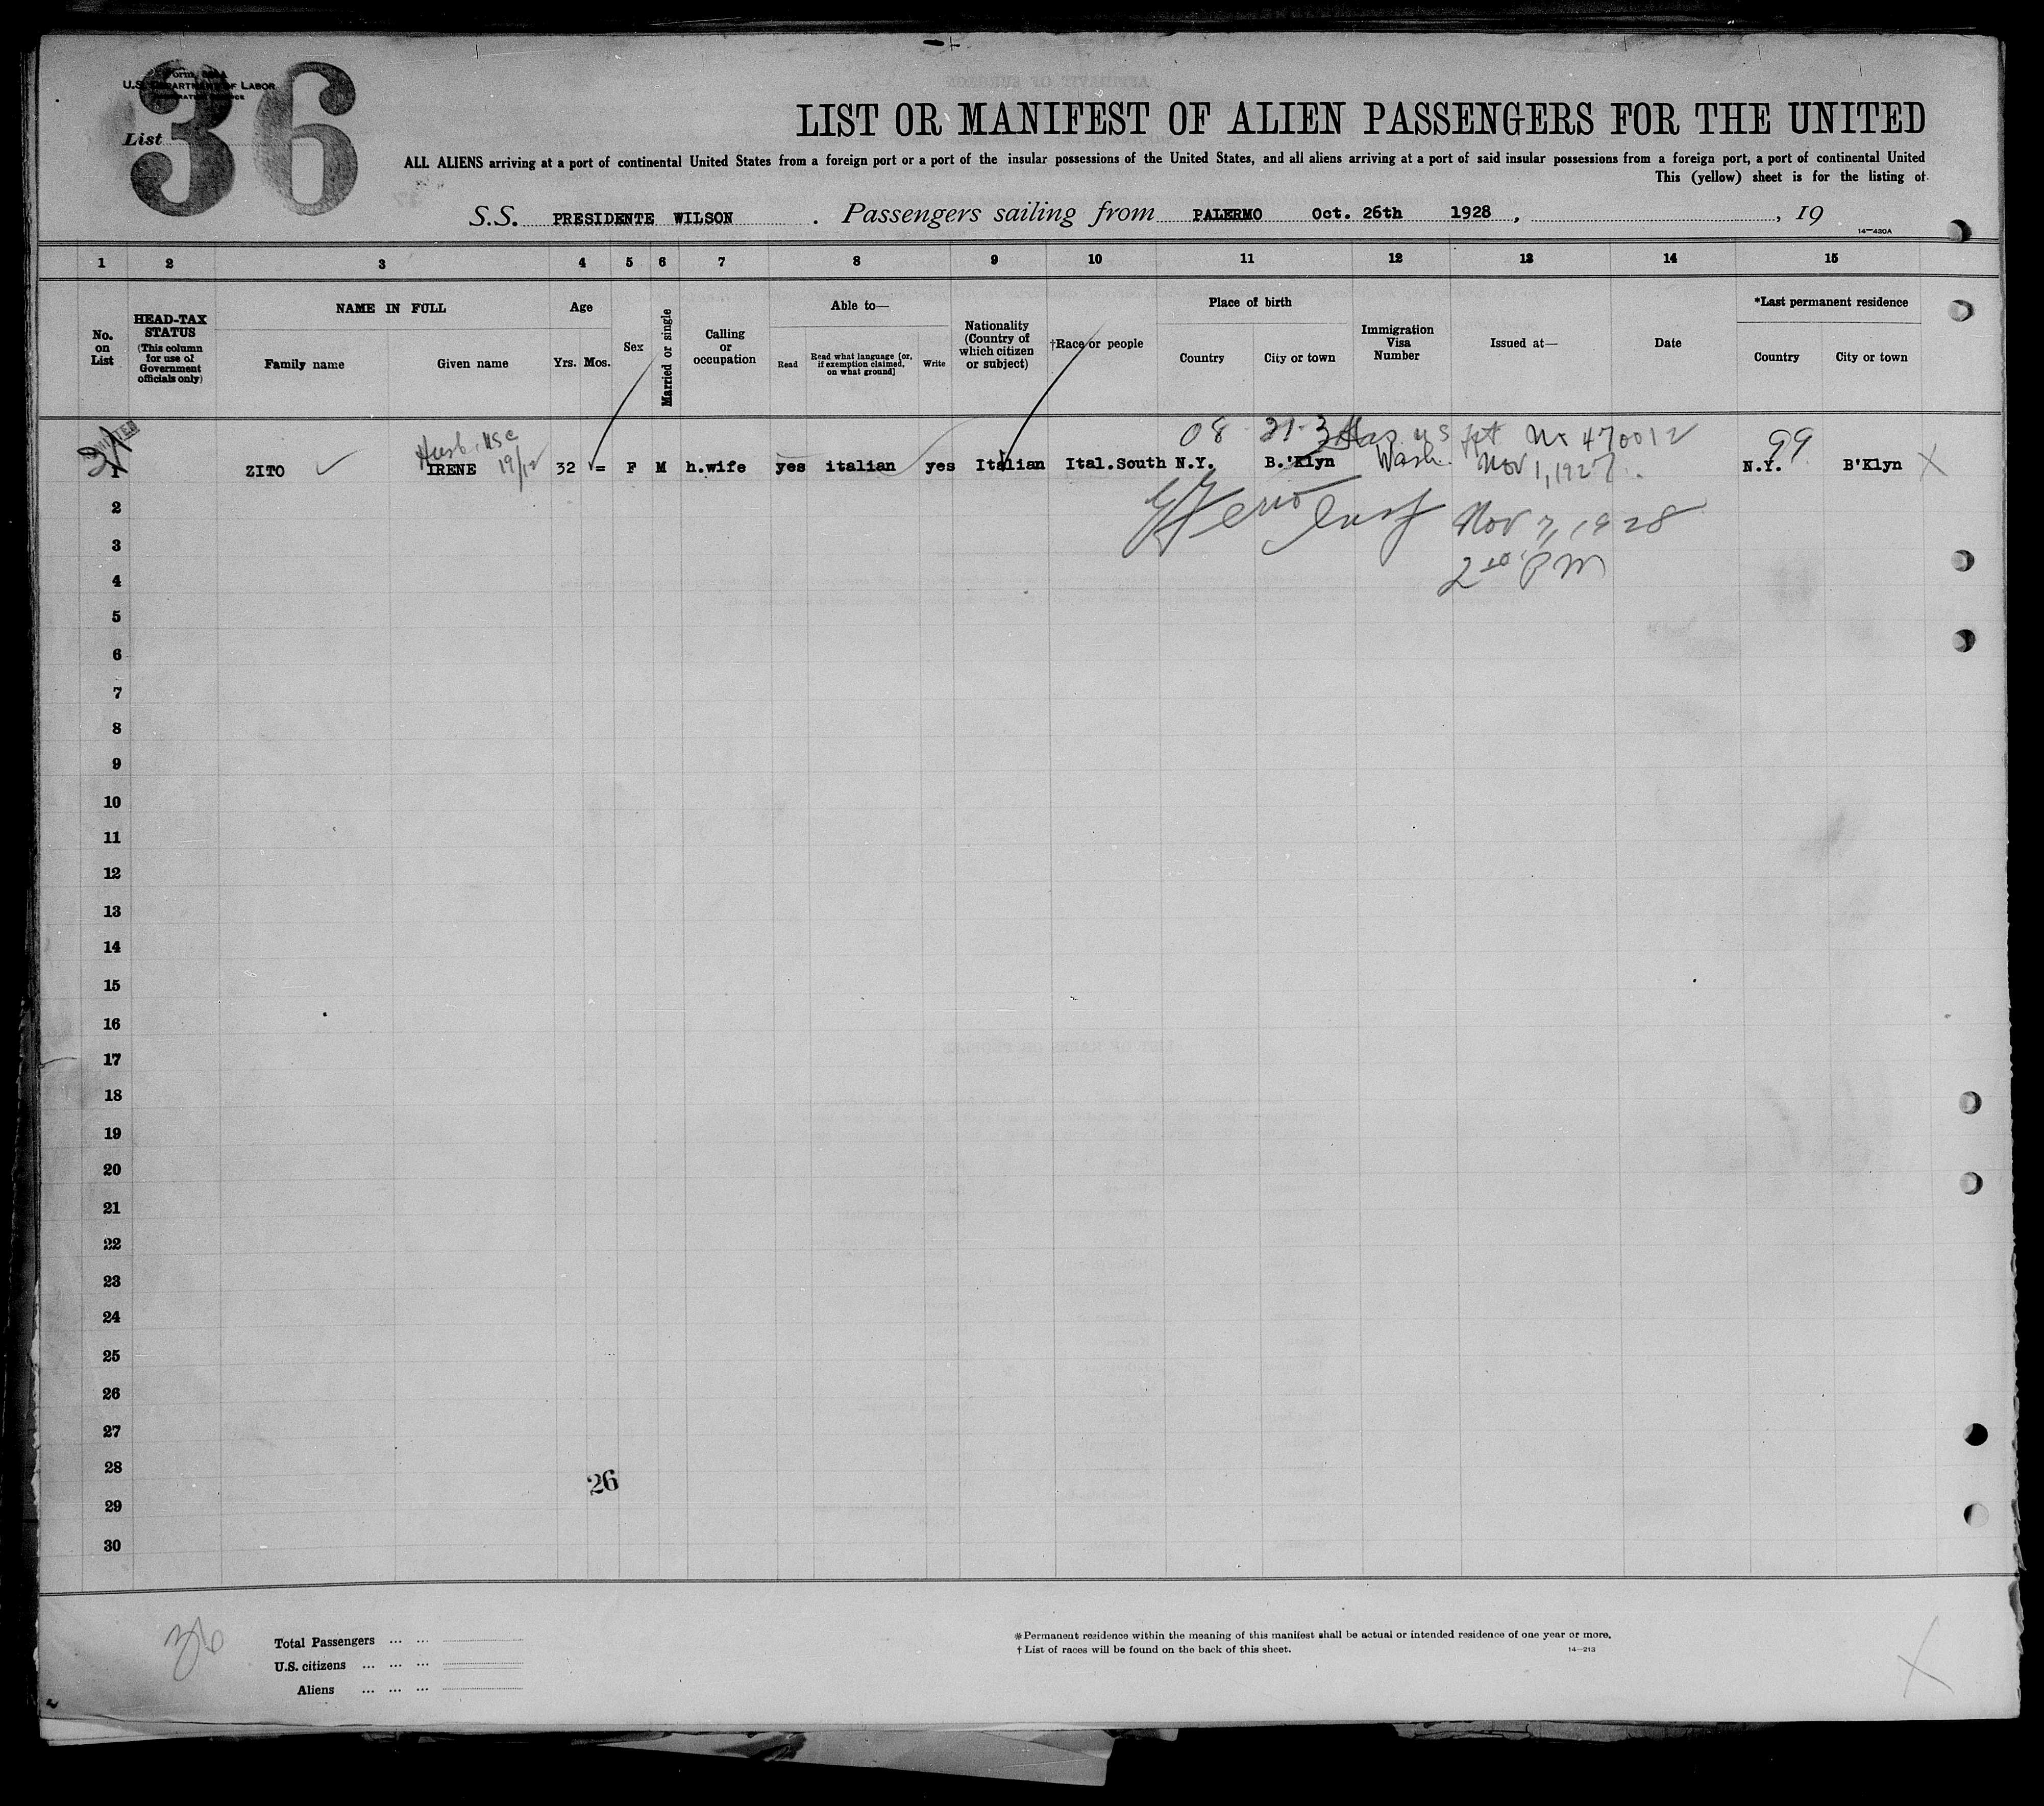 36
U.S. DEPARTMENT OF LABOR
List
LIST OR MANIFEST OF ALIEN PASSENGERS FOR THE UNITED
ALL ALIENS arriving at a port of continental United States from a foreign port or a port of the insular possessions of the United States, and all aliens arriving at a port of said insular possessions from a foreign port, a port of continental United
This (yellow) sheet is for the listing of
S.S. PRESIDENTE WILSON . Passengers sailing from PALERMO Oct. 26th 1928 , , 19
14—430A
1 2 3 4 5 6 7 8 9 10 11 12 13 14 15
No. on List
HEAD-TAX STATUS (This column for use of Government officials only)
NAME IN FULL
Family name
Given name
Age
Yrs. Mos.
Sex
Married or single
Calling or occupation
Able to—
Read
Read what language [or, if exemption claimed, on what ground]
Write
Nationality (Country of which citizen or subject)
†Race or people
Place of birth
Country
City or town
Immigration Visa Number
Issued at—
Date
*Last permanent residence
Country
City or town
Husb. USC 19/12
08 21-3 Has US ppt No 470012 99
1 ZITO IRENE 32 = F M h.wife yes italian yes Italian Ital.South N.Y. B.'Klyn N.Y. B'Klyn X
Wash. Nov 1, 1927.
2
Nov 7, 1928
3
2 PM
4
5
6
7
8
9
10
11
12
13
14
15
16
17
18
19
20
21
22
23
24
25
26
27
28
26
29
30
36
Total Passengers ... ...
U.S. citizens ... ... ...
Aliens ... ... ...
*Permanent residence within the meaning of this manifest shall be actual or intended residence of one year or more.
†List of races will be found on the back of this sheet.
14—213
X